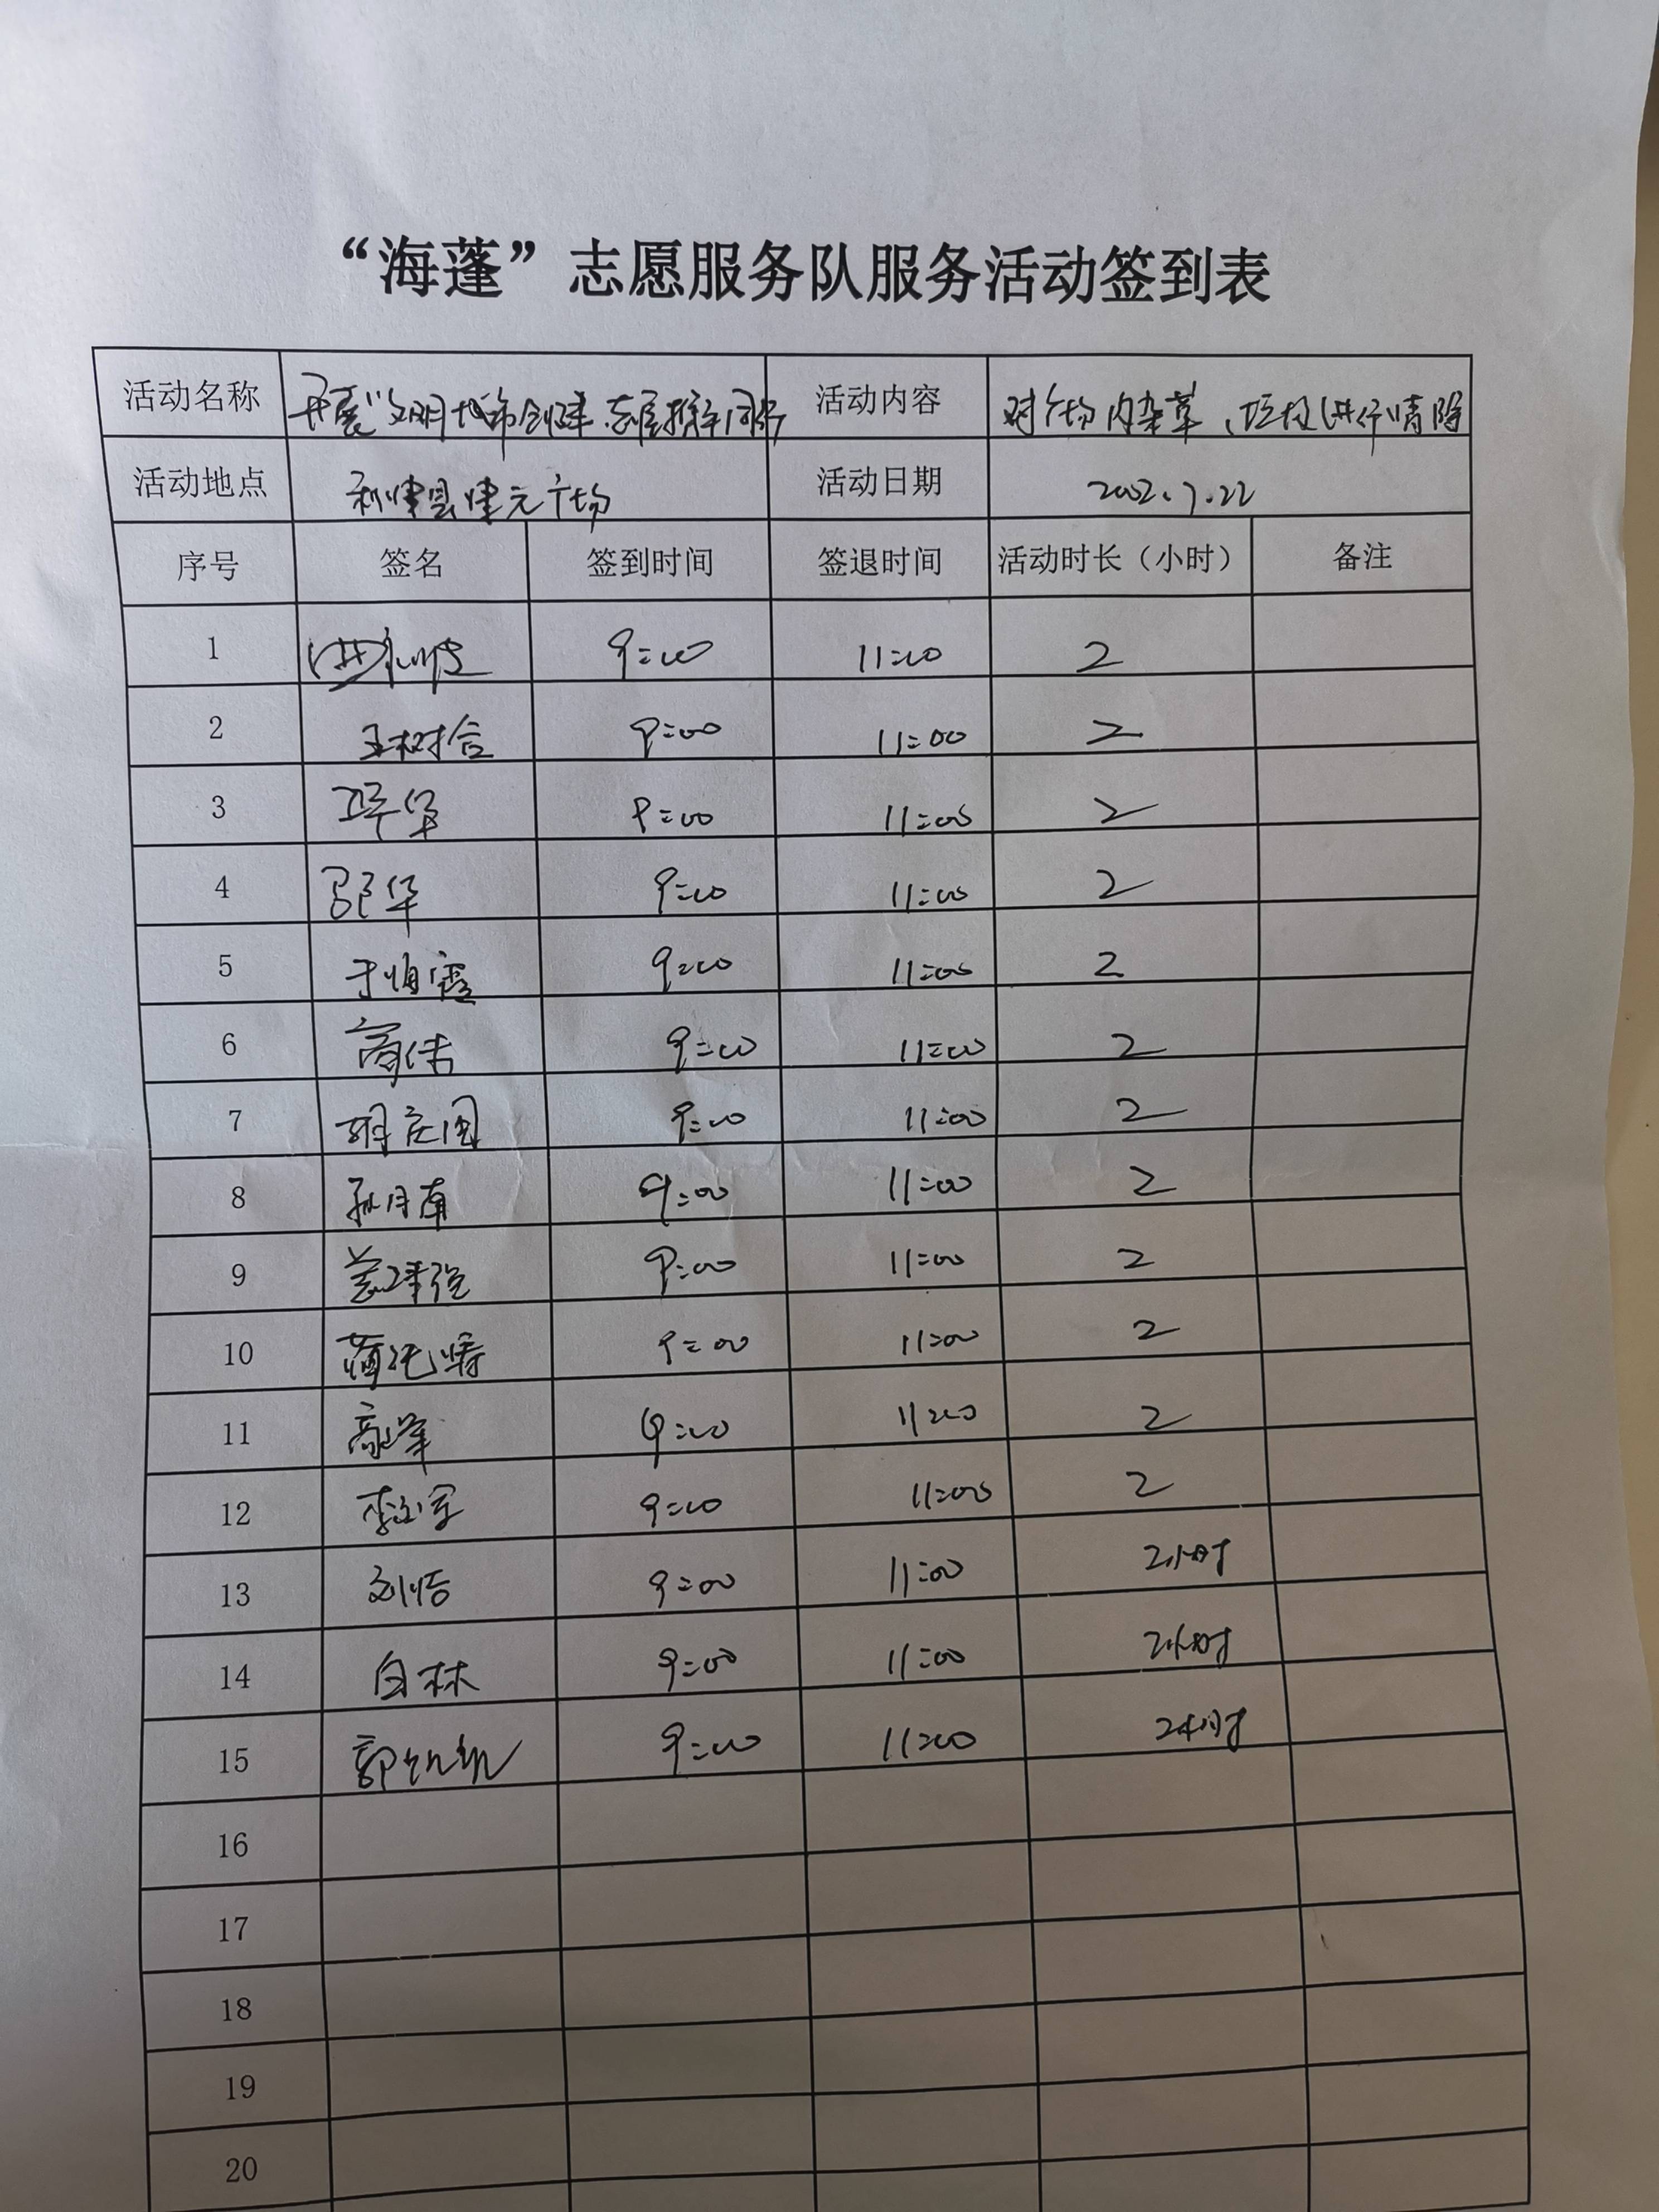 “海蓬”志愿服务队服务活动签到表
活动名称 开展“文明城市创建 志愿服务同行 活动内容 对广场内杂草、垃圾进行清除
活动地点 利津县津元广场 活动日期 2002.7.22
序号 签名 签到时间 签退时间 活动时长（小时） 备注
1 9:00 11:00 2
2 王树合 9:00 11:00 2
3 9:00 11:00 2
4 9:00 11:00 2
5 9:00 11:00 2
6 9:00 11:00 2
7 胡庆国 9:00 11:00 2
8 孙月南 9:00 11:00 2
9 9:00 11:00 2
10 9:00 11:00 2
11 高峰 9:00 11:00 2
12 9:00 11:00 2
13 刘洁 9:00 11:00 2小时
14 白林 9:00 11:00 2小时
15 9:00 11:00 2小时
16
17
18
19
20